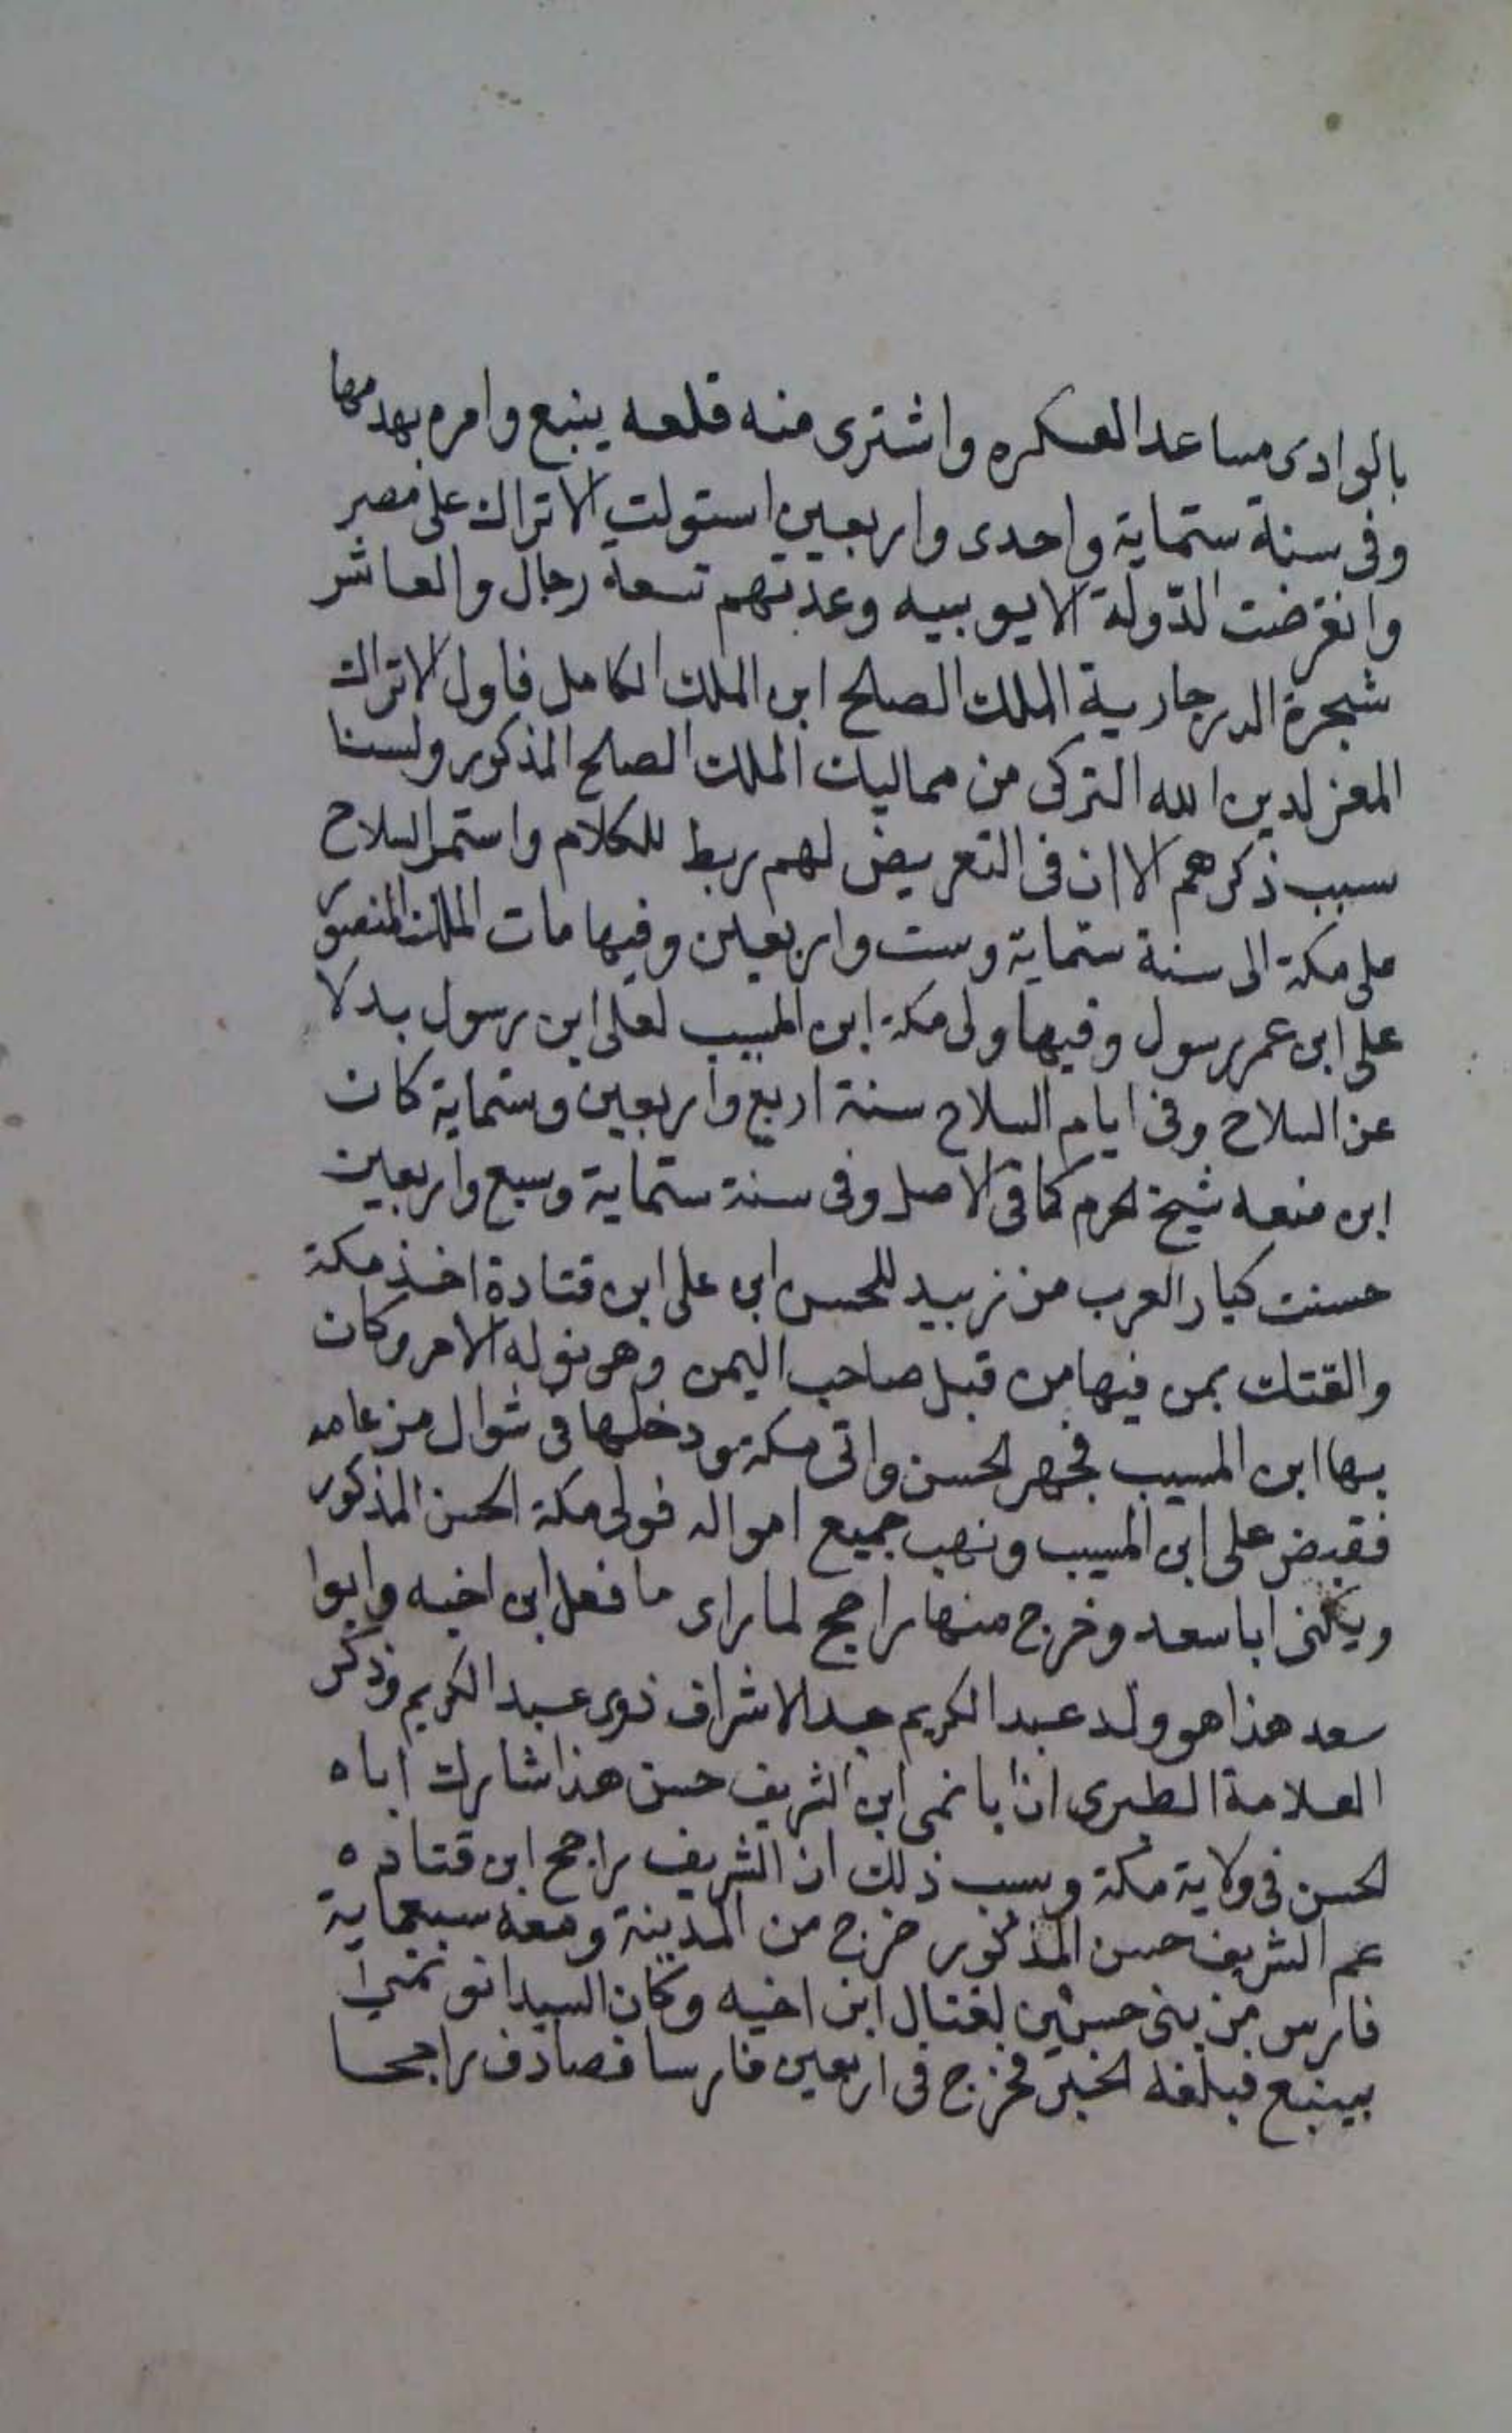 بالوادى مساعد العسكره واشترى منه قلعه ينبع وامره بهدمها
وفى سنة ستماية واحدى واربعين استولت الاتراك على مصر
وانقرضت الدّولة الايوبيه وعدتهم تسعة رجال والعاشر
شجرة الدر جارية الملك الصلح ابن الملك الكامل فاول الاتراك
المعز لدين الله التركى من مماليك الملك الصلح المذكور ولسنا
سبب ذكرهم الا ان فى التعريض لهم ربط للكلام واستمر السلاح
على مكة الى سنة ستماية وست واربعين وفيها مات الملك المنصور
على ابن عمر رسول وفيها ولى مكة ابن المسيب لعلى ابن رسول بدلا
عن السلاح وفى ايام السلاح سنة اربع واربعين وستماية كان
ابن منعه شيخ الحرم كما فى الاصل وفى سنة ستماية وسبع واربعين
حسنت كبار العرب من زبيد للحسن ابن على ابن قتادة اخذ مكة
والقتك بمن فيها من قبل صاحب اليمن وهو نوله الامر وكان
بها ابن المسيب فجهز الحسن واتى مكة ودخلها فى شوال من عامه
فقبض على ابن المسيب ونهب جميع امواله فولى مكة الحسن المذكور
ويكنى ابا سعد وخرج منها راجح لما راى ما فعل ابن اخيه وابوا
سعد هذا هو ولد عبد الكريم جد الاشراف ذوى عبد الكريم وذكر
العلامة الطبرى ان ابا نمى ابن الشريف حسن هذا شارك اباه
الحسن فى ولاية مكة وسبب ذلك ان الشريف راجح ابن قتاده
عم الشريف حسن المذكور خرج من المدينة ومعه سبعماية
فارس من بنى حسين لقتال ابن اخيه وكان السيد ابو نمى
بينبع فبلغه الخبر فخرج فى اربعين فارسا فصادف راجحا